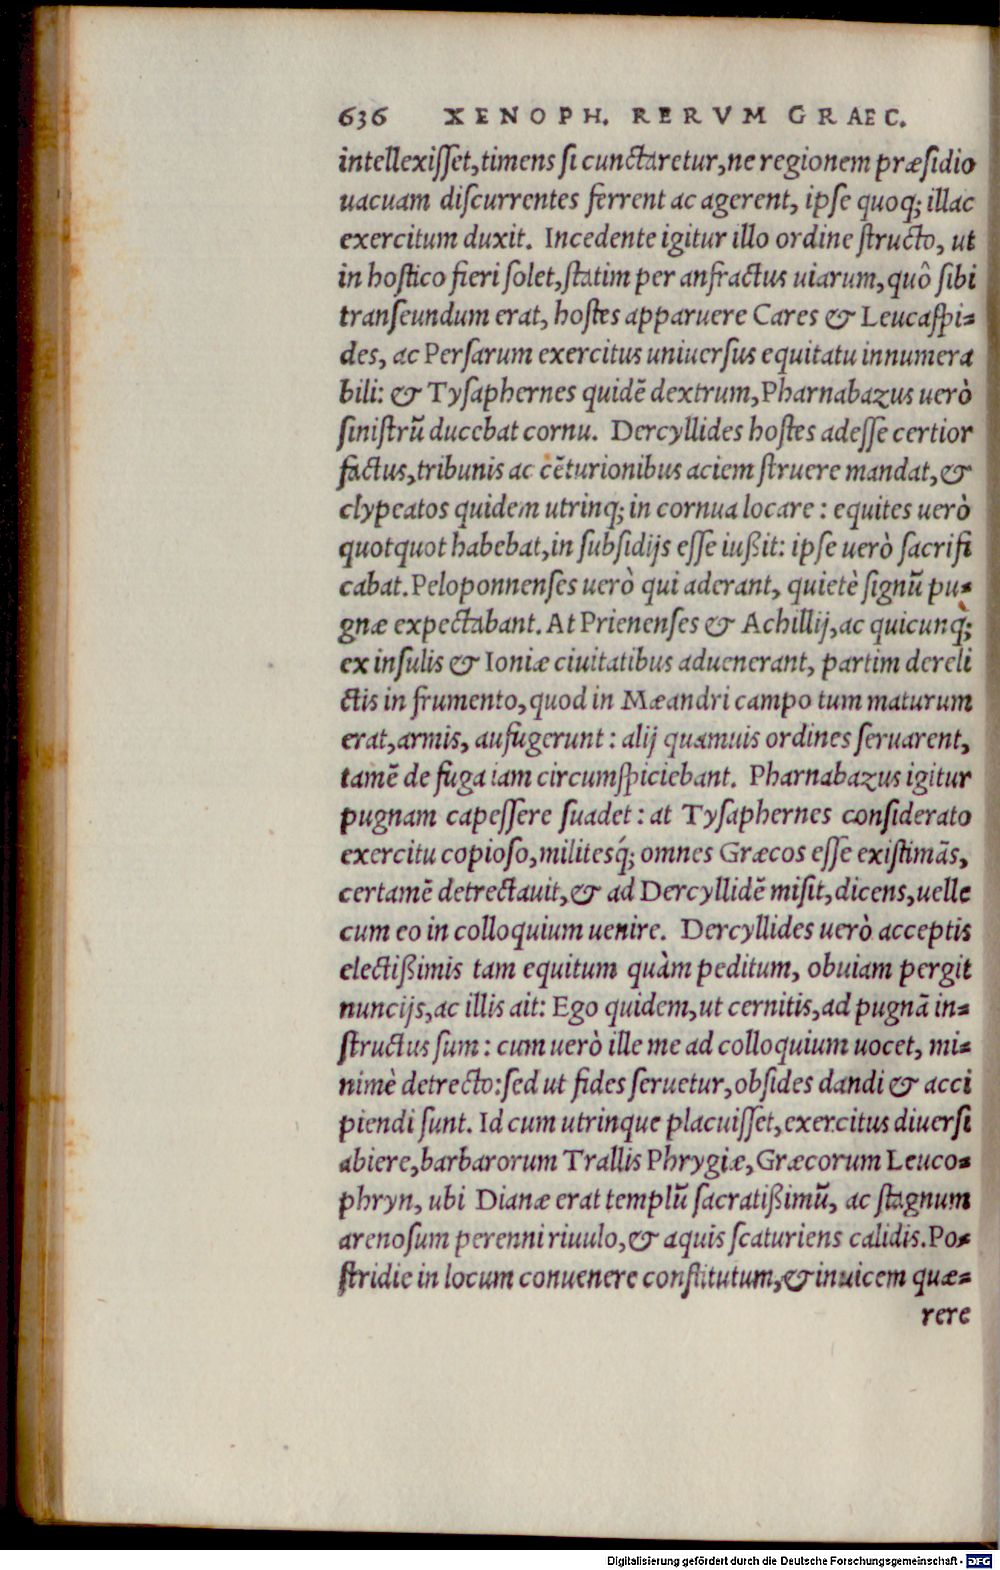 636 XENOPH. RERVM GRAEC.
intellexiſſet, timens ſi cunctaretur, ne regionem præſidio
uacuam diſcurrentes ferrent ac agerent, ipſe quoq; illac
exercitum duxit. Incedente igitur illo ordine ſtructo, ut
in hoſtico fieri ſolet, ſtatim per anfractus uiarum, quô ſibi
tranſeundum erat, hoſtes apparuere Cares & Leucaſpi=
des, ac Perſarum exercitus uniuerſus equitatu innumera
bili: & Tyſaphernes quidē dextrum, Pharnabazus uerò
ſiniſtrū ducebat cornu. Dercyllides hoſtes adeſſe certior
factus, tribunis ac cēturionibus aciem ſtruere mandat, &
clypeatos quidem utrinq; in cornua locare: equites uerò
quotquot habebat, in ſubſidijs eſſe iußit: ipſe uerò ſacrifi
cabat. Peloponnenſes uerò qui aderant, quietè ſignū pu=
gnæ expectabant. At Prienenſes & Achillij, ac quicunq;
ex inſulis & Ioniæ ciuitatibus aduenerant, partim dereli
ctis in frumento, quod in Mæandri campo tum maturum
erat, armis, aufugerunt: alij quamuis ordines ſeruarent,
tamē de fuga iam circumſpiciebant. Pharnabazus igitur
pugnam capeſſere ſuadet: at Tyſaphernes conſiderato
exercitu copioſo, militesq́; omnes Græcos eſſe exiſtimãs,
certamē detrectauit, & ad Dercyllidē miſit, dicens, uelle
cum eo in colloquium uenire. Dercyllides uerò acceptis
electißimis tam equitum quàm peditum, obuiam pergit
nuncijs, ac illis ait: Ego quidem, ut cernitis, ad pugnã in=
ſtructus ſum: cum uerò ille me ad colloquium uocet, mi=
nimè detrecto: ſed ut fides ſeruetur, obſides dandi & acci
piendi ſunt. Id cum utrinque placuiſſet, exercitus diuerſi
abiere, barbarorum Trallis Phrygiæ, Græcorum Leuco=
phryn, ubi Dianæ erat templū ſacratißimū, ac ſtagnum
arenoſum perenni riuulo, & aquis ſcaturiens calidis. Po=
ſtridie in locum conuenere conſtitutum, & inuicem quæ=
rere
Digitalisierung gefördert durch die Deutsche Forschungsgemeinschaft - DFG